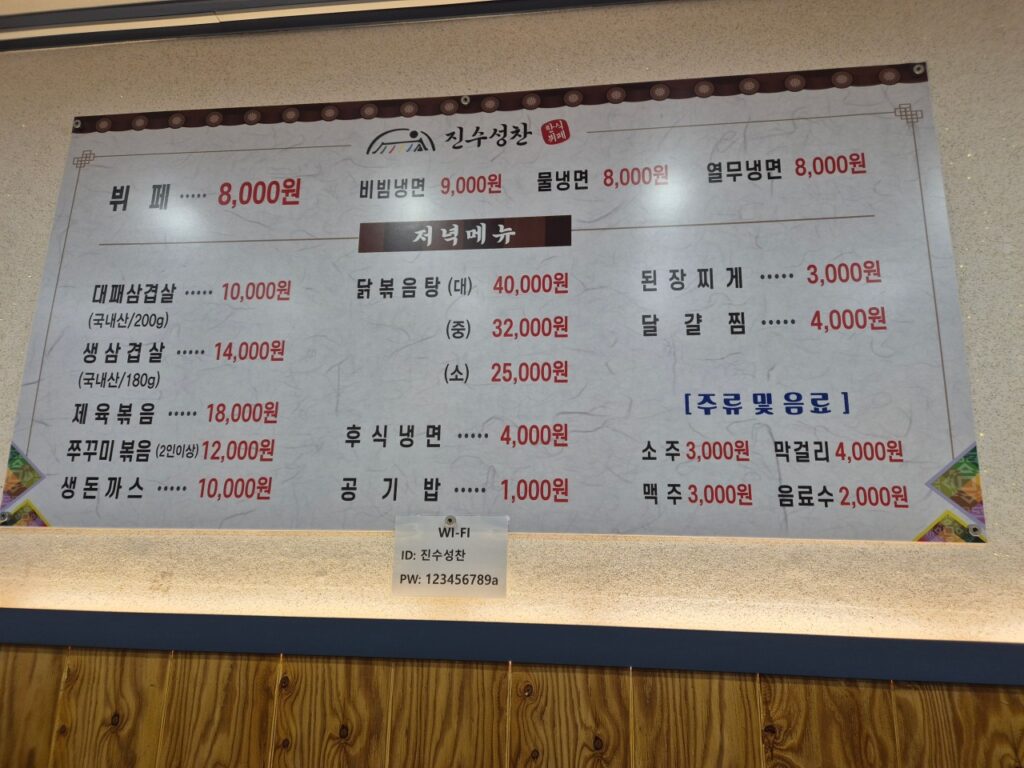 진수성찬 한식뷔페
뷔 페 ····· 8,000원 비빔냉면 9,000원 물냉면 8,000원 열무냉면 8,000원
저녁메뉴
대패삼겹살 ····· 10,000원
(국내산/200g)
생삼겹살 ····· 14,000원
(국내산/180g)
제육볶음 ····· 18,000원
쭈꾸미볶음 (2인이상) 12,000원
생돈까스 ····· 10,000원
닭볶음탕 (대) 40,000원
(중) 32,000원
(소) 25,000원
후식냉면 ····· 4,000원
공 기 밥 ····· 1,000원
된장찌게 ····· 3,000원
달 걀 찜 ····· 4,000원
[주류 및 음료]
소주 3,000원 막걸리 4,000원
맥주 3,000원 음료수 2,000원
WI-FI
ID: 진수성찬
PW: 123456789a